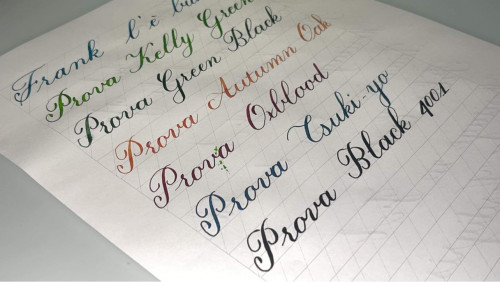 Frank l'è
Prova Kelly Green
Prova Green Black
Prova Autumn Oak
Prova Oxblood
Prova Tsuki-yo
Prova Black 4001